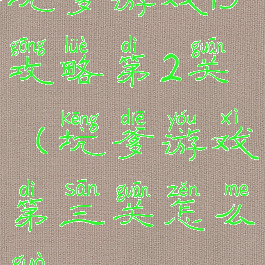 gōng lüè dì guān
攻略第2关
kēng diē yóu xì
（坑爹游戏
dì sān guān zěn me
第三关怎么
guò